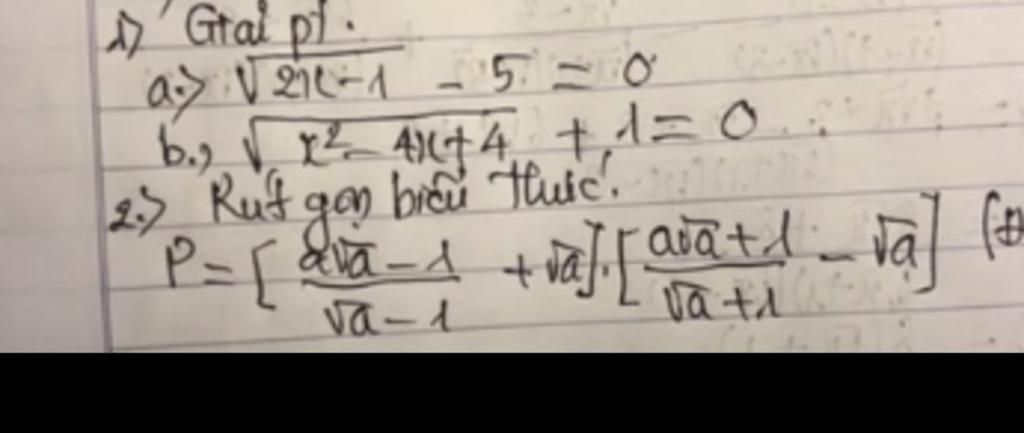 1) Giải pt.
a.) √2x-1 - 5 = 0
b.) √x² - 4x + 4 + 1 = 0
2.) Rút gọn biểu thức.
P = [ a√a - 1 / √a - 1 + √a ] . [ a√a + 1 / √a + 1 - √a ]